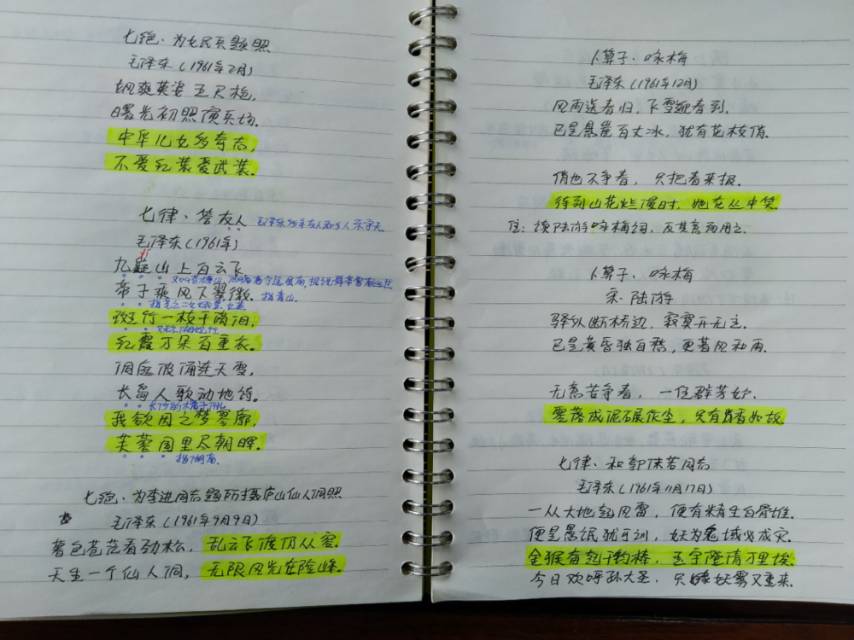 七绝·为女民兵题照
毛泽东(1961年2月)
飒爽英姿五尺枪,
曙光初照演兵场。
中华儿女多奇志,
不爱红装爱武装。
七律·答友人
毛泽东(1961年)
九嶷山上白云飞
帝子乘风下翠微。指青山。
斑竹一枝千滴泪,
红霞万朵百重衣。
洞庭波涌连天雪,
长岛人歌动地诗。
我欲因之梦寥廓,
芙蓉国里尽朝晖。
指湖南。
七绝·为李进同志题所摄庐山仙人洞照
毛泽东(1961年9月9日)
暮色苍茫看劲松,乱云飞渡仍从容。
天生一个仙人洞,无限风光在险峰。
卜算子·咏梅
毛泽东(1961年12月)
风雨送春归,飞雪迎春到。
已是悬崖百丈冰,犹有花枝俏。
俏也不争春,只把春来报。
待到山花烂漫时,她在丛中笑。
注:读陆游咏梅词,反其意而用之。
卜算子·咏梅
宋·陆游
驿外断桥边,寂寞开无主。
已是黄昏独自愁,更著风和雨。
无意苦争春,一任群芳妒。
零落成泥碾作尘,只有香如故。
七律·和郭沫若同志
毛泽东(1961年11月17日)
一从大地起风雷,便有精生白骨堆。
僧是愚氓犹可训,妖为鬼蜮必成灾。
金猴奋起千钧棒,玉宇澄清万里埃。
今日欢呼孙大圣,只缘妖雾又重来。